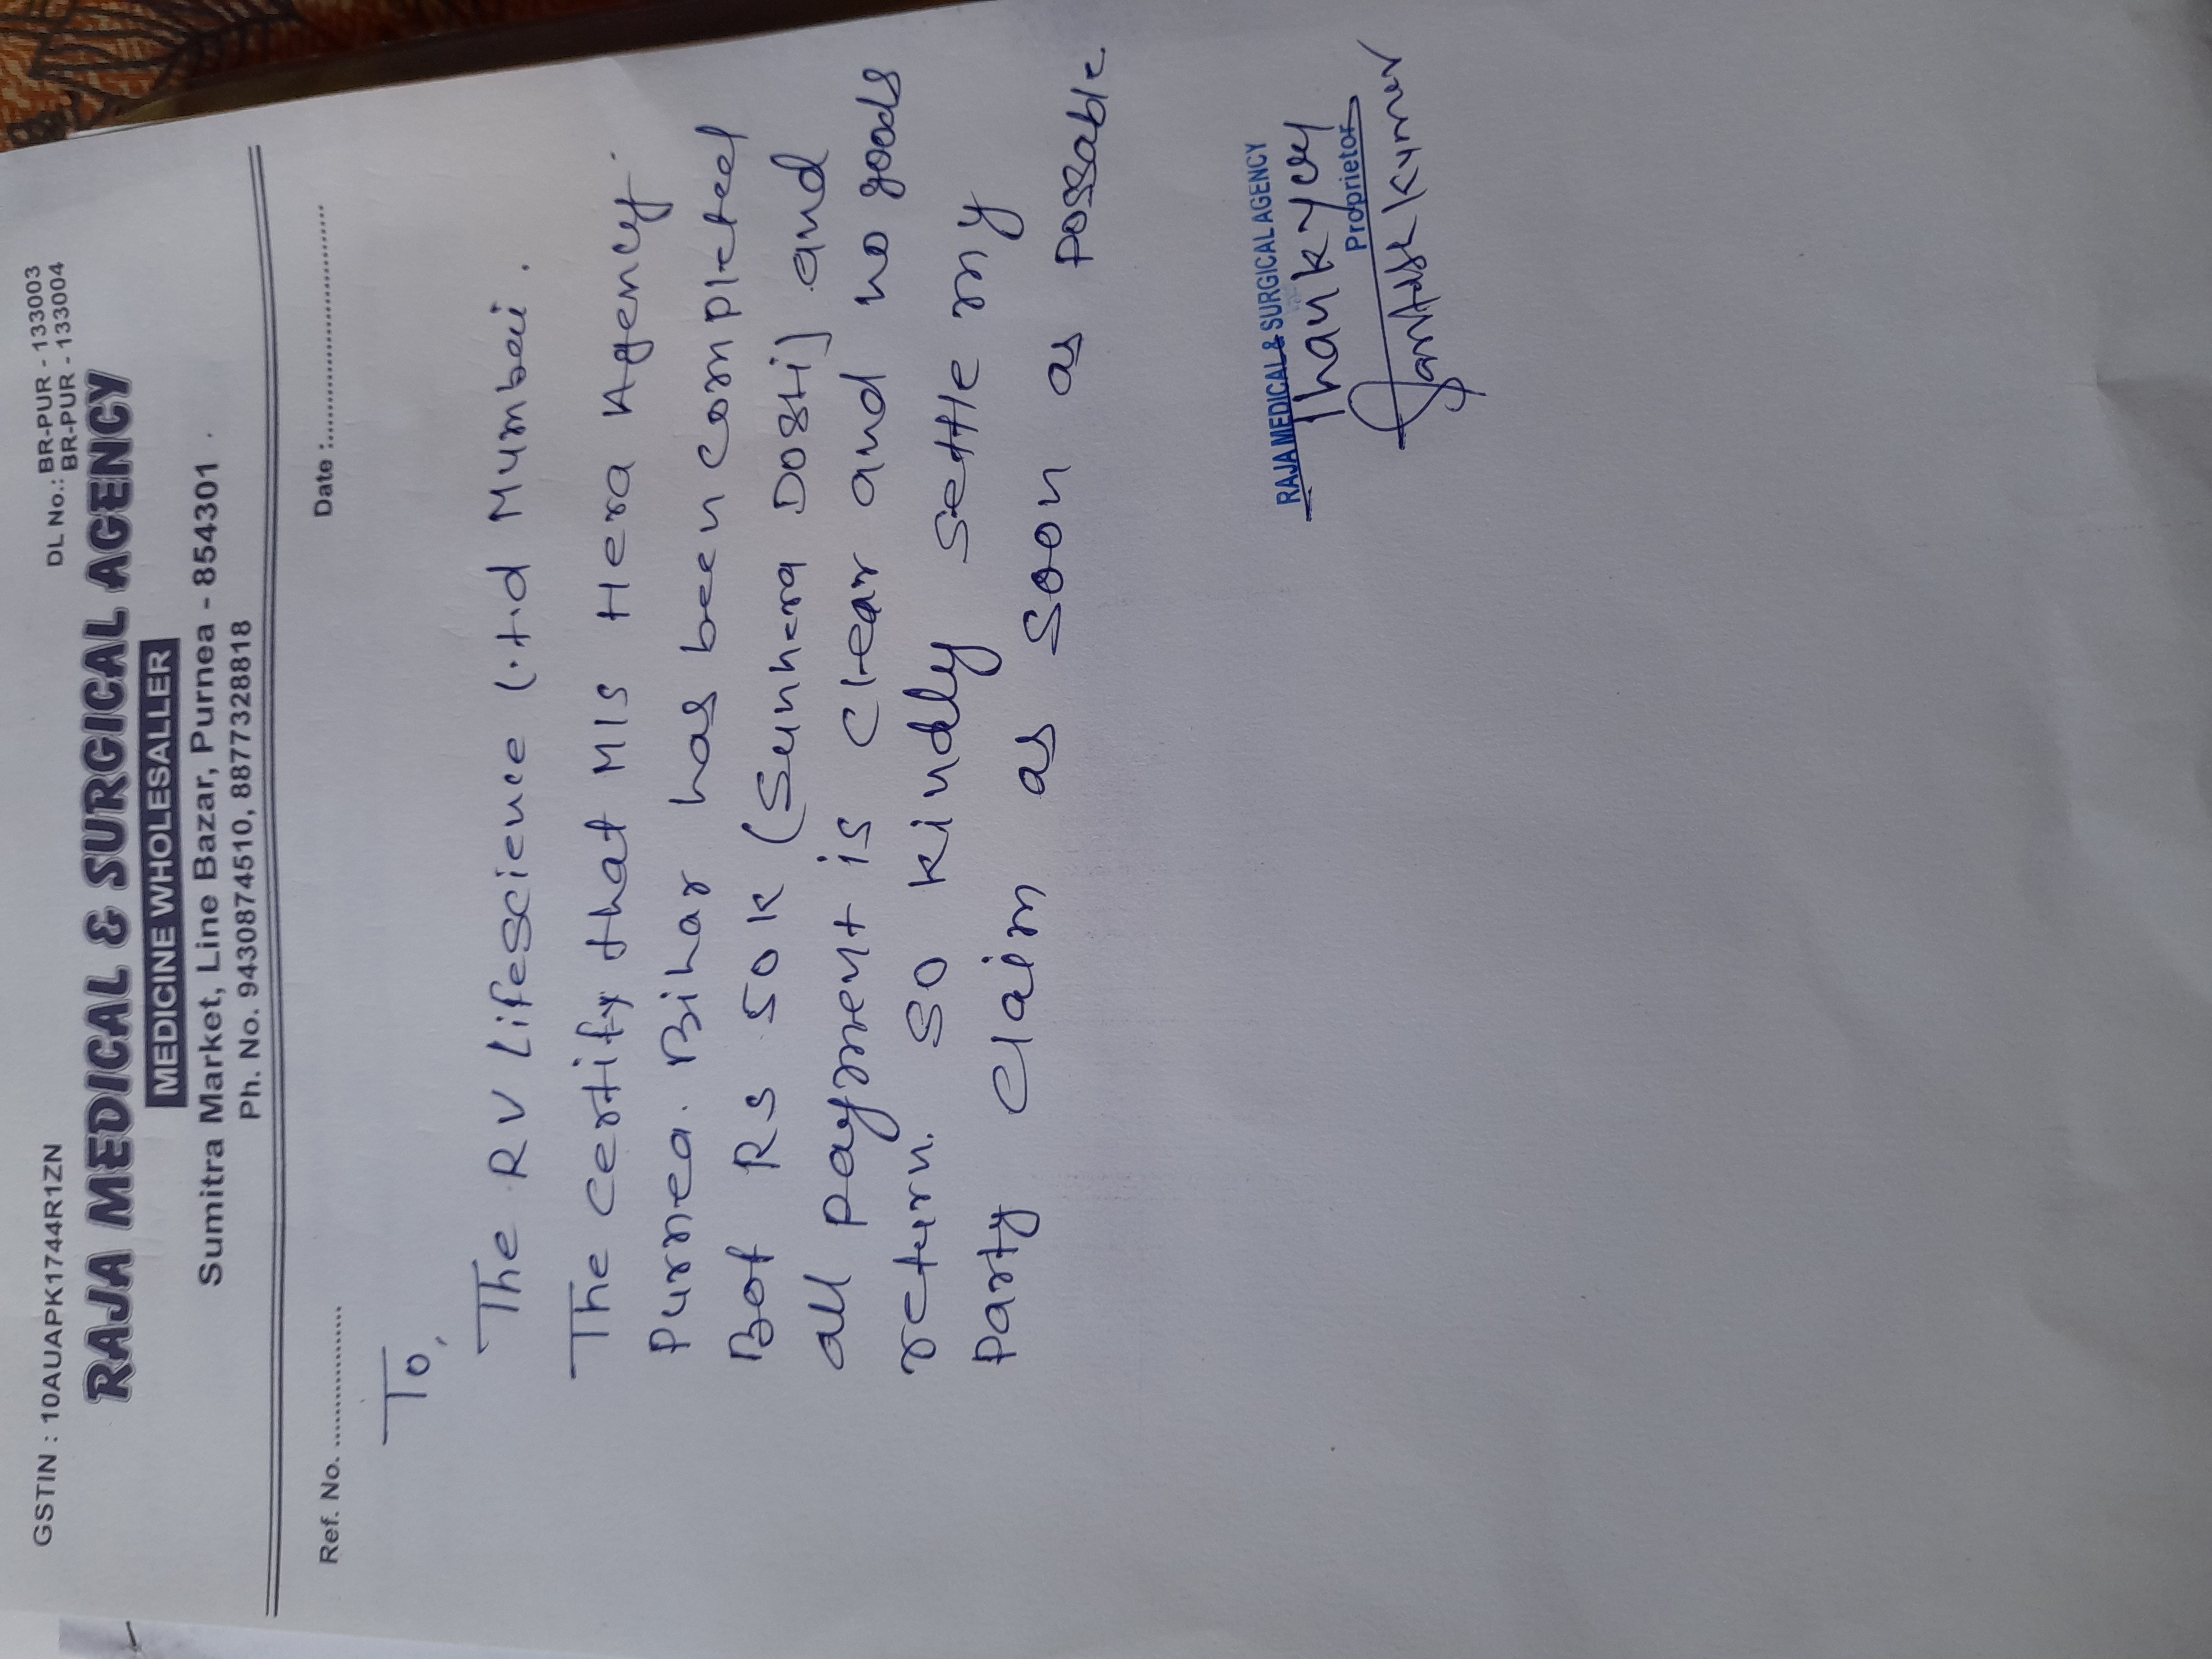 GSTIN : 10AUAPK1744R1ZN
DL No.: BR-PUR - 133003
BR-PUR - 133004
RAJA MEDICAL & SURGICAL AGENCY
MEDICINE WHOLESALLER
Sumitra Market, Line Bazar, Purnea - 854301
Ph. No. 9430874510, 8877328818
Ref. No. ................
Date :............................
To,
The RV Lifescience Ltd Mumbai.
The certify that M/S Hera Agency.
Purnea. Bihar has been completed
Bot Rs 50k (Sunhera Dosti) and
all payment is clear and no goods
return. So kindly settle my
Party claim as soon as possable
RAJA MEDICAL & SURGICAL AGENCY
Thank you
Proprietor
Kumar